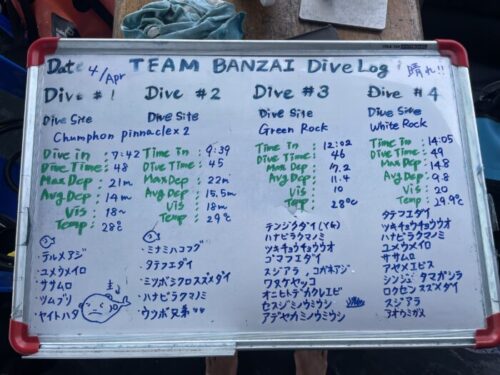 Date 4/Apr TEAM BANZAI Dive Log 晴れ!!
Dive #1
Dive Site
Chumphon pinnacle x 2
Dive in : 7:42
Dive Time : 48
Max Dep : 21m
Avg Dep : 14m
Vis : 18~
Temp : 28℃
・テルメアジ
・ユメウメイロ
・ササムロ
・ツムブリ
・ヤイトハタ
Dive #2
Dive Site
Time in : 9:39
Dive Time : 45
Max Dep : 22m
Avg Dep : 15.5m
Vis : 18m
Temp : 29℃
・ミナミハコフグ
・タテフエダイ
・ミツボシクロスズメダイ
・ハナビラクマノミ
・ウツボ兄弟
Dive #3
Dive Site
Green Rock
Time in : 12:02
Dive Time : 46
Max Dep : 17.2
Avg Dep : 11.4
Vis : 10
Temp : 28℃
テンジクダイ(YG)
ハナビラクマノミ
ツキチョウチョウウオ
ゴマフエダイ
スジアラ、コガネアジ
ワヌケヤッコ
オニヒトデカクレエビ
セスジミノウミウシ
アデヤカミノウミウシ
Dive #4
Dive Site
White Rock
Time in : 14:05
Dive Time : 49
Max Dep : 14.8
Avg Dep : 9.8
Vis : 20
Temp : 29.9℃
タテフエダイ
ツキチョウチョウウオ
ユメウメイロ
ササムロ
アヤメエビス
シンジュタマガシラ
ロクセンスズメダイ
スジアラ
アオウミガメ